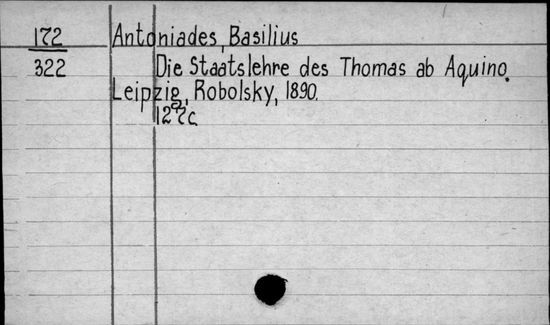 172 Antoniades, Basilius
322 Die Staatslehre des Thomas ab Aquino.
Leipzig, Robolsky, 1890.